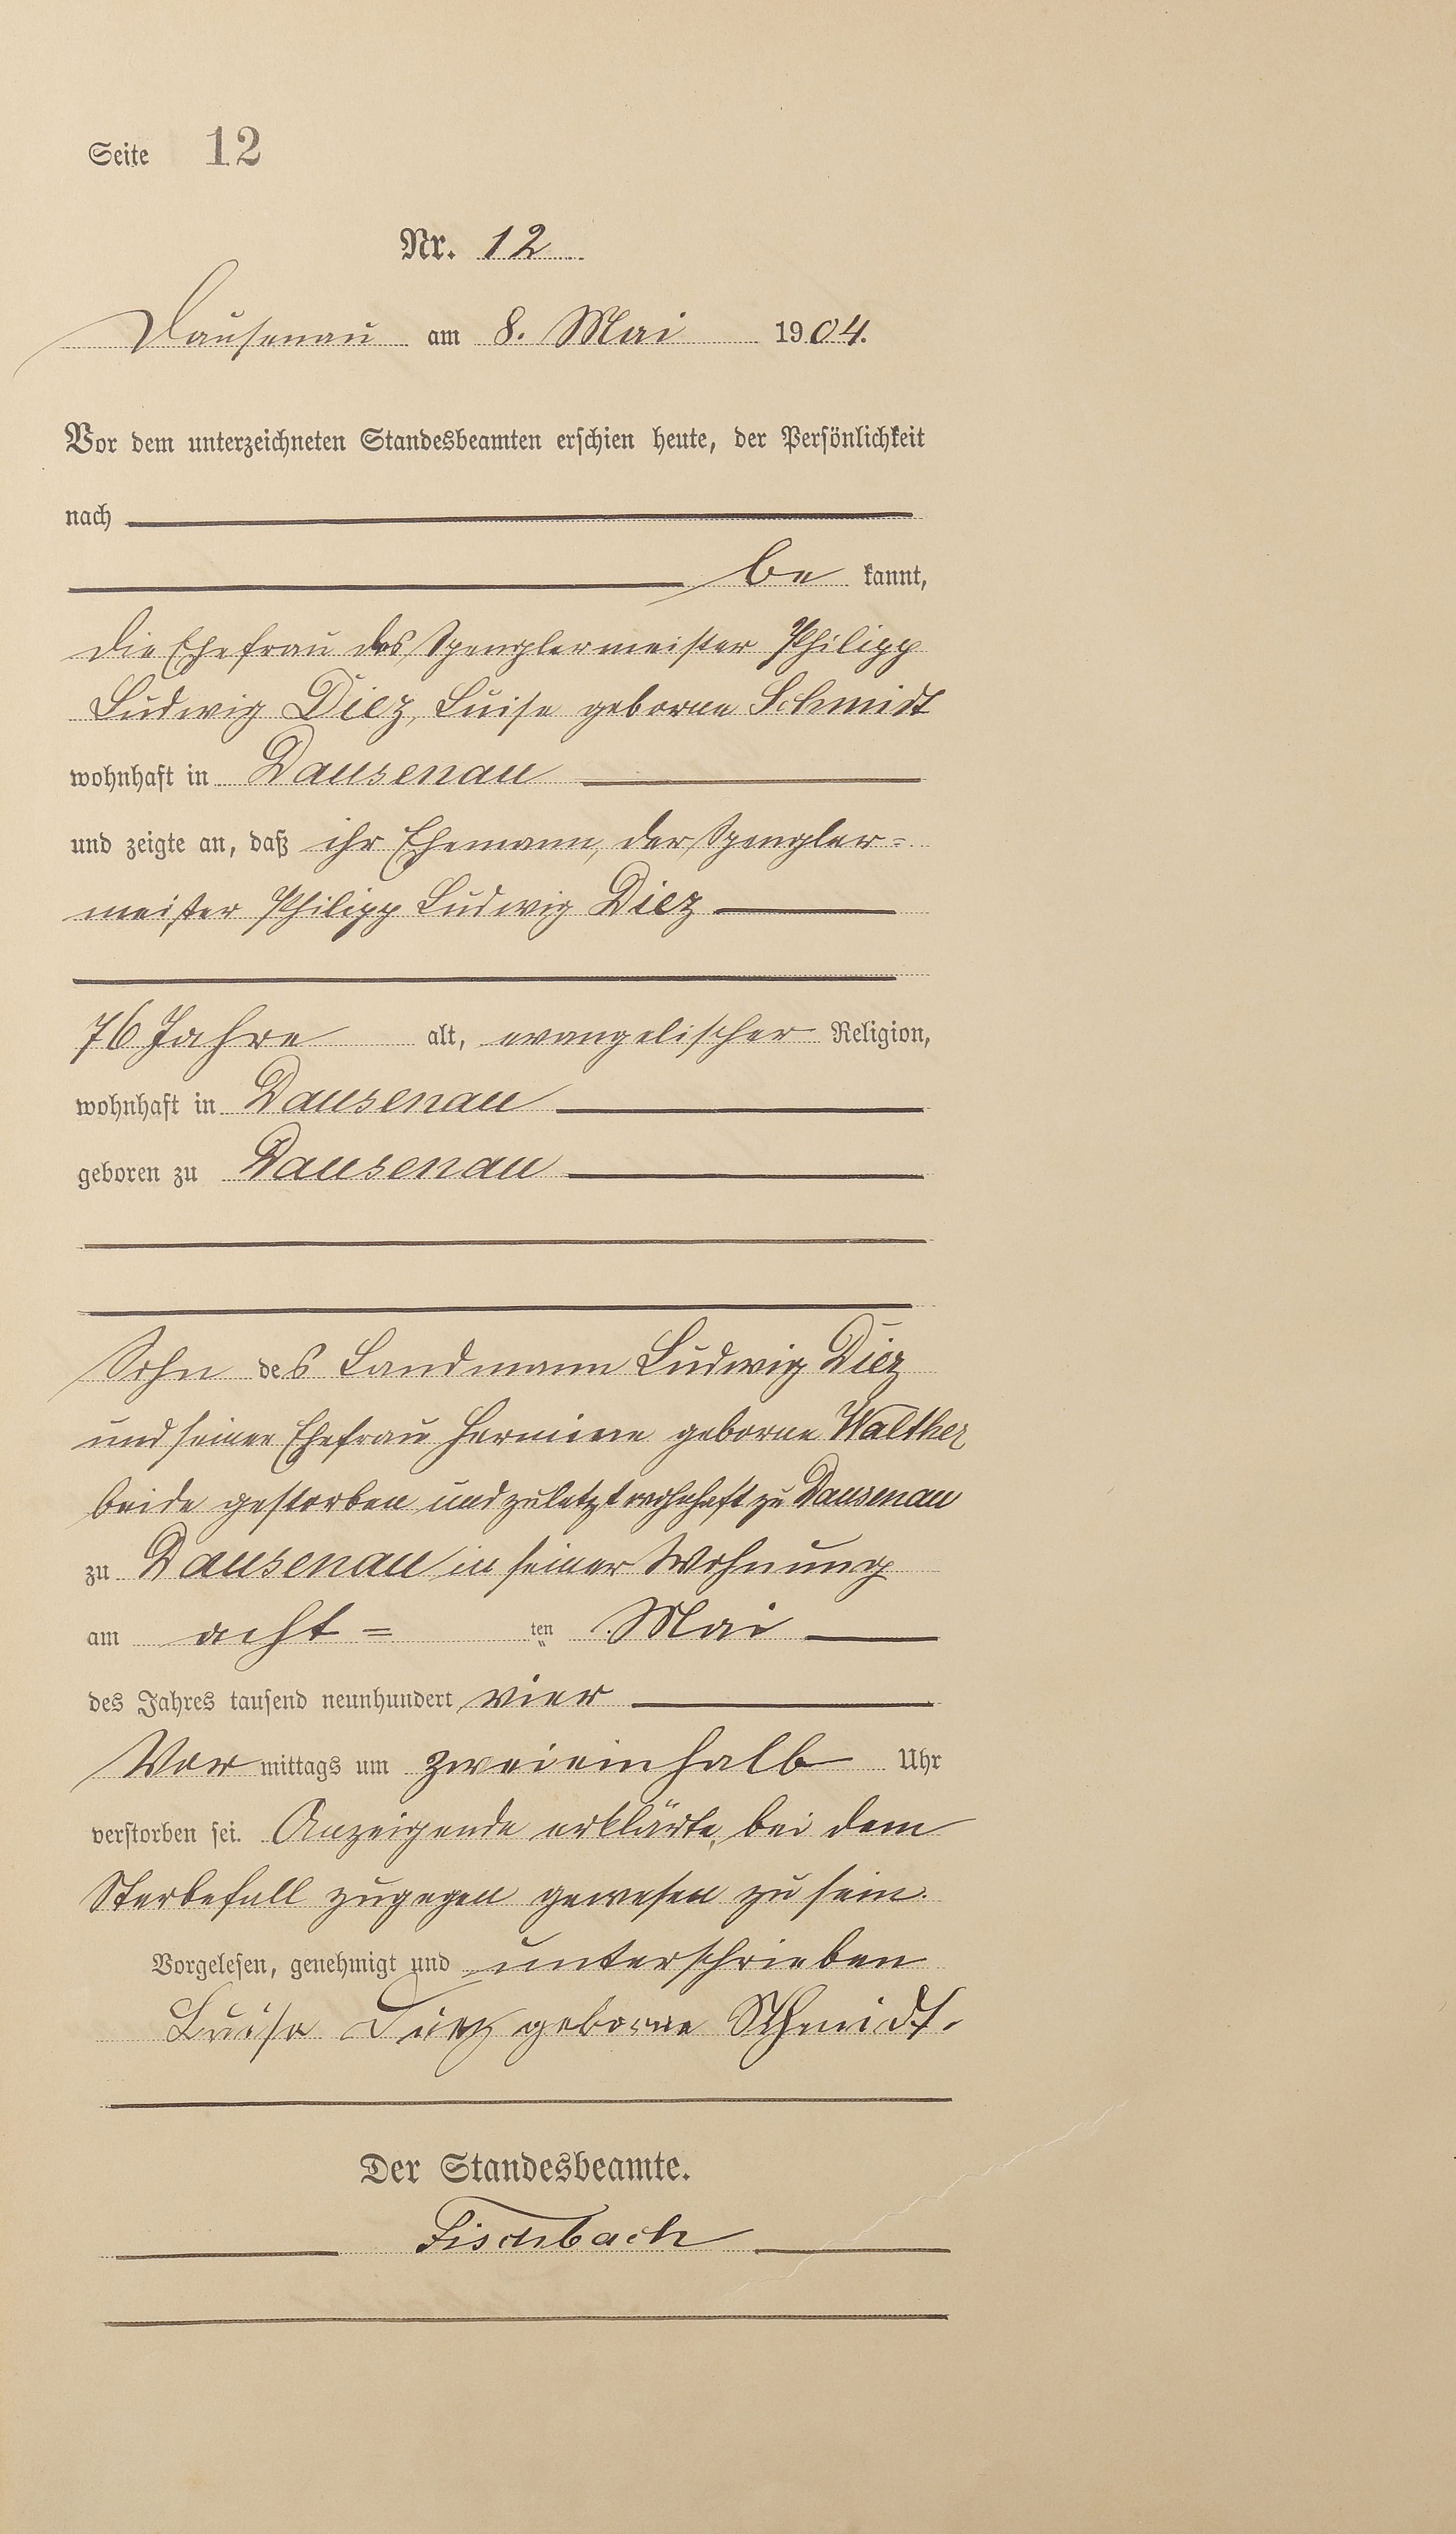 Seite 12
Nr. 12
Dausenau am 8. Mai 1904.
Vor dem unterzeichneten Standesbeamten erschien heute, der Persönlichkeit
nach
be kannt,
die Ehefrau des Spenglermeister Philipp
Ludwig Diez, Luise geborne Schmidt
wohnhaft in Dausenau
und zeigte an, daß ihr Ehemann, der Spengler=
meister Philipp Ludwig Diez
76 Jahre alt, evangelischer Religion,
wohnhaft in Dausenau
geboren zu Dausenau
Sohn des Landmann Ludwig Diez
und seiner Ehefrau Hermine geborne Walther
beide gestorben und zuletzt wohnhaft zu Dausenau
zu Dausenau in seiner Wohnung
am acht = ten Mai
des Jahres tausend neunhundert vier
Vor mittags um zweieinhalb Uhr
verstorben sei. Anzeigende erklärte, bei dem
Sterbefall zugegen gewesen zu sein.
Vorgelesen, genehmigt und unterschrieben
Luise Diez geborne Schmidt.
Der Standesbeamte.
Fischbach